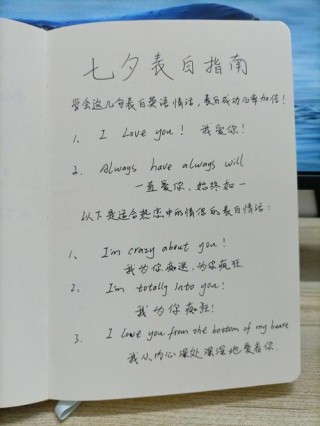 七夕表白指南
学会这几句表白英语情话，表白成功几率加倍！
1、 I Love you！ 我爱你！
2、 Always have always will
一直爱你，始终如一
以下是适合热恋中的情侣的表白情话：
1、 I'm crazy about you！
我为你痴迷，为你疯狂
2、 I'm totally into you！
我为你痴狂！
3、 I love you from the bottom of my heart
我从内心深处深深地爱着你．